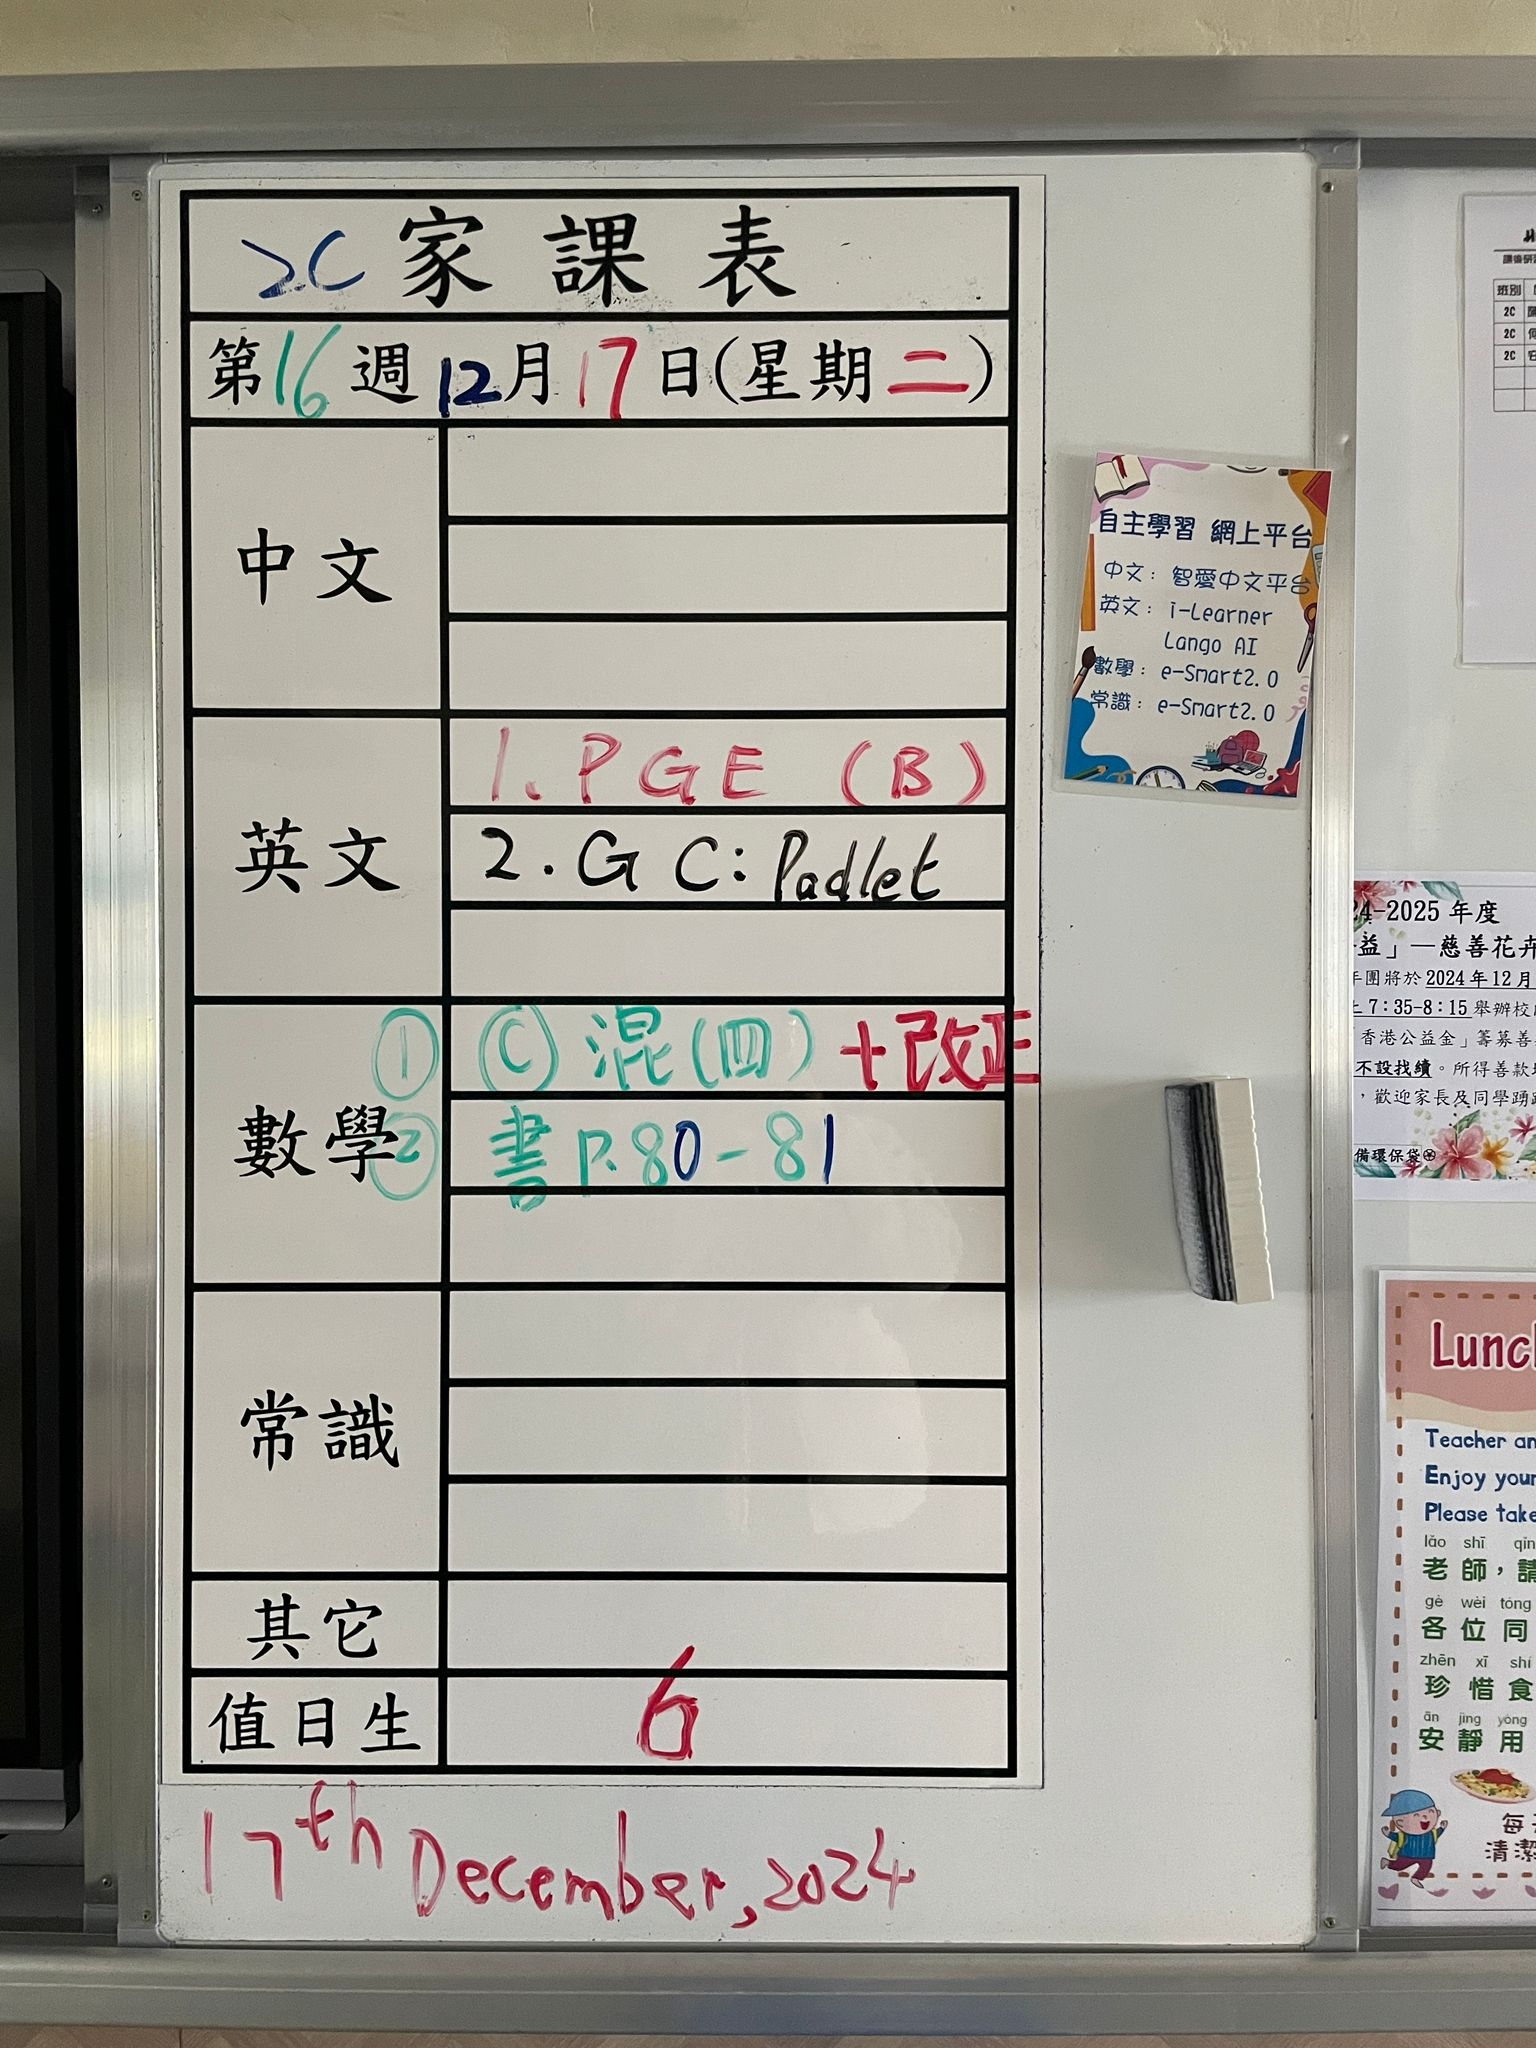 2C 家課表
第16週12月17日(星期二)
中文
英文
1. PGE (B)
2. GC: Padlet
數學
① Ⓒ 混(四)+改正
② 書 P.80-81
常識
其它
值日生
6
17th December, 2024
自主學習 網上平台
中文: 智愛中文平台
英文: i-Learner
Lango AI
數學: e-Smart2.0
常識: e-Smart2.0
班別
2C
2C
2C
24-2025 年度
益」—慈善花卉
團將於 2024 年 12 月
7:35-8:15 舉辦校
香港公益金」籌募善
不設找續。所得善款
,歡迎家長及同學踴
備環保袋
Lunch
Teacher an
Enjoy your
Please take
lǎo shī qǐn
老師,請
gè wèi tóng
各位同
zhēn xī shí
珍惜食
ān jìng yòng
安靜用
每
清潔